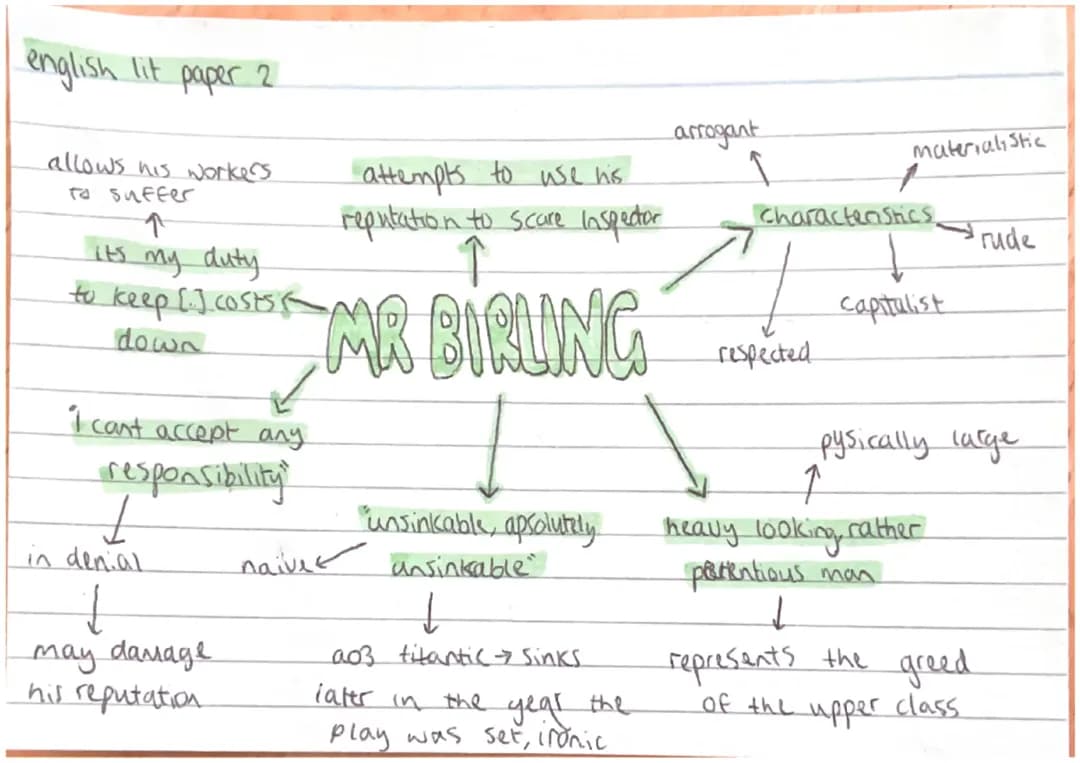 english lit paper 2
allows his workers
to suffer
its my duty
to keep [.] costs
down
attempts to use his
reputation to scare Inspector
arrogant
materialistic
characteristics
rude
capitalist
respected
MR BIRLING
"I cant accept any
responsibility"
in denial
may damage
his reputation
"unsinkable, apsolutely
unsinkable"
naive
ao3 titantic → sinks
later in the year the
play was set, ironic
pysically large
heavy looking, rather
portentious man
represents the greed
of the upper class